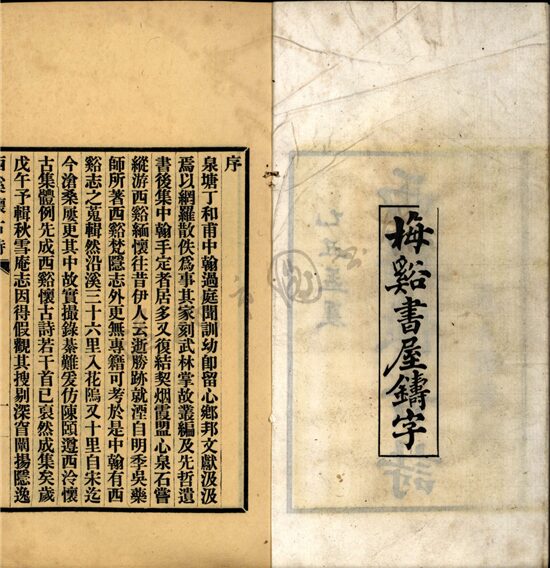 梅谿書屋鑄字
序
泉塘丁和甫中翰過庭聞訓幼卽留心鄉邦文獻汲汲
焉以網羅散佚爲事其家刻武林掌故叢編及先哲遺
書後集中翰手定者居多又復結契烟霞盟心泉石嘗
縱游西谿緬懷往昔伊人云逝勝跡就湮自明季吳藥
師所著西谿梵隱志外更無專籍可考於是中翰有西
谿志之蒐輯然沿溪三十六里入花隖又十里自宋迄
今滄桑屢更其中故實撮錄綦難爰仿陳頤遵西泠懷
古集體例先成西谿懷古詩若干首已裒然成集矣歲
戊午予輯秋雪庵志因得假觀其搜剔深窅闡揚隱逸